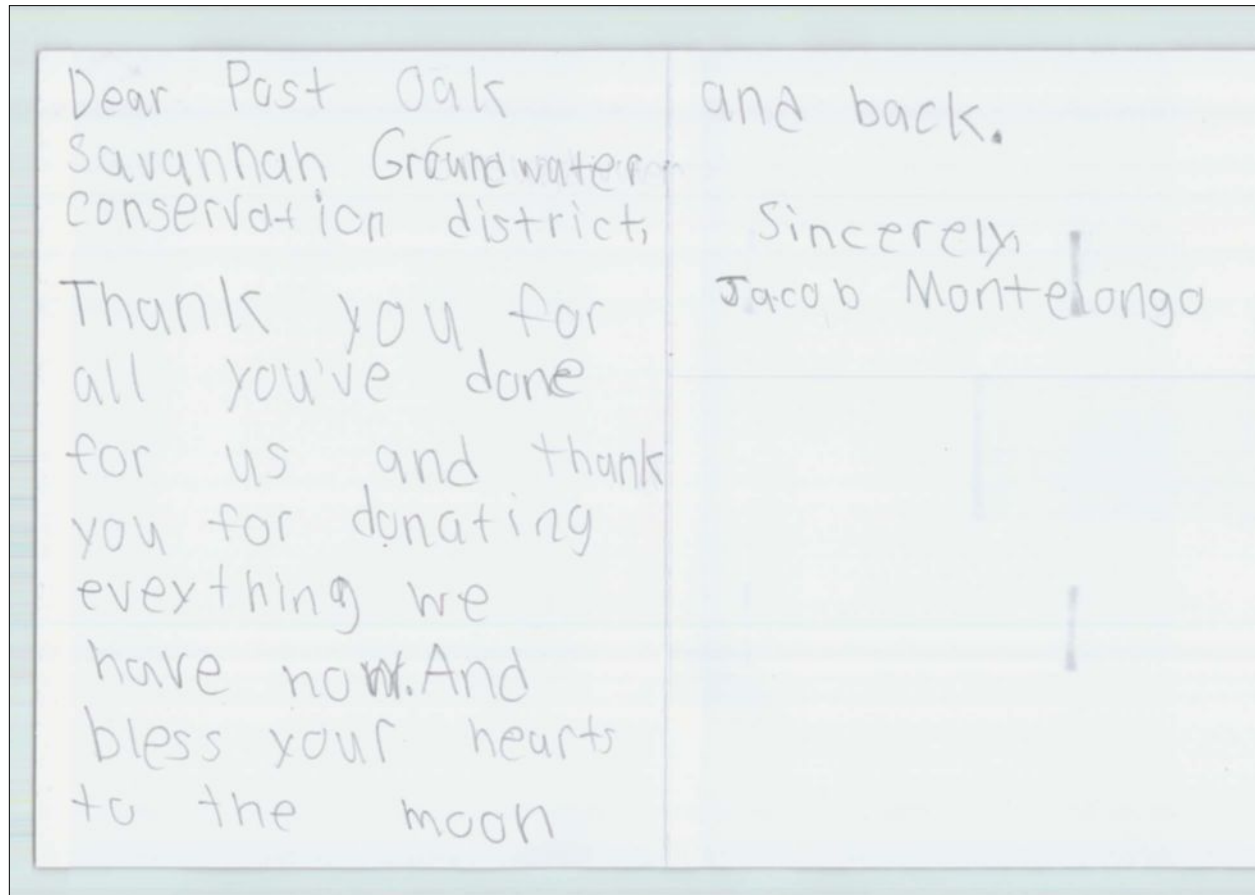 Dear Post Oak
Savannah Groundwater
conservation district,
Thank you for
all you've done
for us and thank
you for donating
eveything we
have now. And
bless your hearts
to the moon
and back.
Sincerely,
Jacob Montelongo